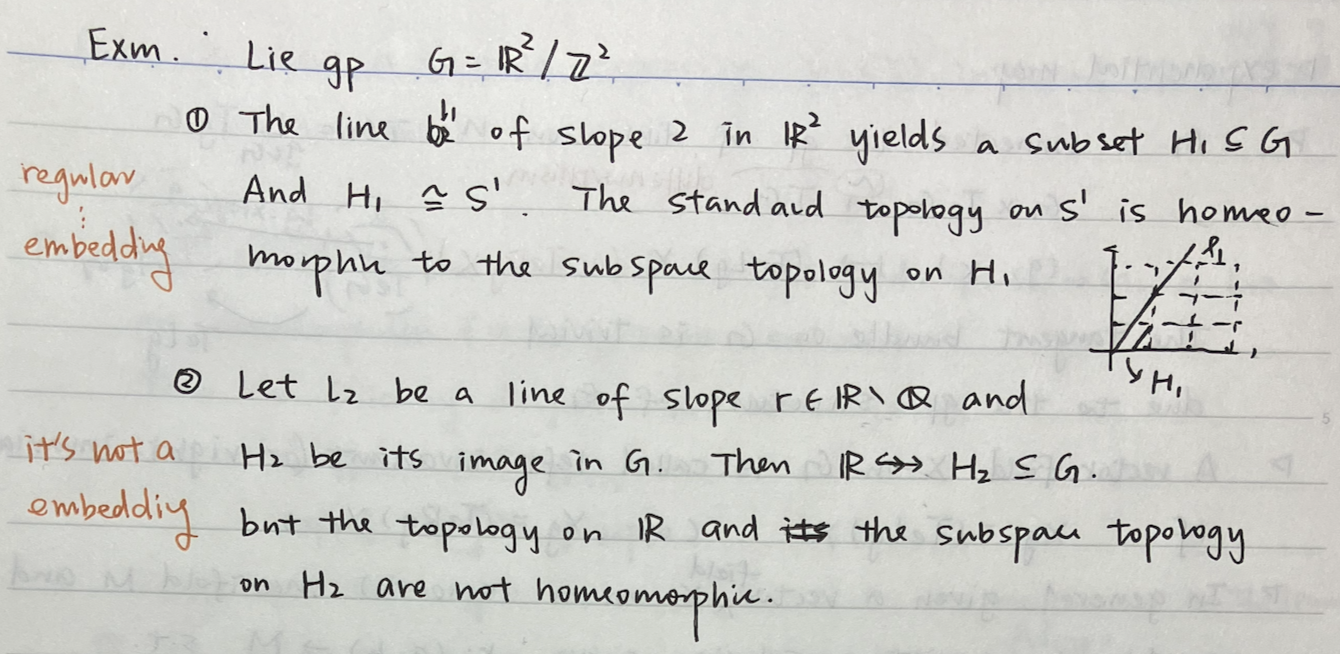 Exm. : Lie gp G = ℝ²/ℤ²
① The line l₁ of slope 2 in ℝ² yields a subset H₁ ⊆ G
regular
And H₁ ≅ S¹. The standard topology on S¹ is homeo-
embedding
morphic to the subspace topology on H₁
l₁
H₁
② Let L₂ be a line of slope r ∈ ℝ\ℚ and
it's not a
H₂ be its image in G. Then ℝ ↪↠ H₂ ⊆ G.
embedding
but the topology on ℝ and its the subspace topology
on H₂ are not homeomorphic.